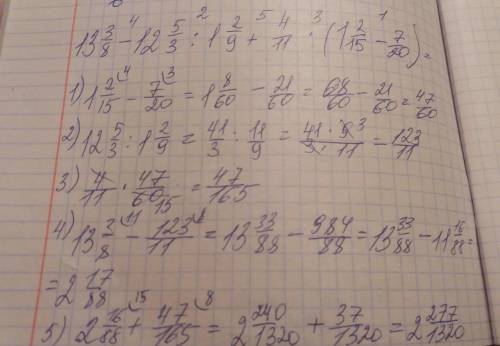 13 3/8 - 12 5/3 : 1 2/9 + 4/11 · (1 2/15 - 7/20) =
1) 1 2/15 - 7/20 = 1 8/60 - 21/60 = 68/60 - 21/60 = 47/60
2) 12 5/3 : 1 2/9 = 41/3 : 11/9 = 41·9/3·11 = 123/11
3) 4/11 · 47/60 = 47/165
4) 13 3/8 - 123/11 = 13 33/88 - 984/88 = 13 33/88 - 11 16/88 =
= 2 17/88
5) 2 16/88 + 47/165 = 2 240/1320 + 37/1320 = 2 277/1320